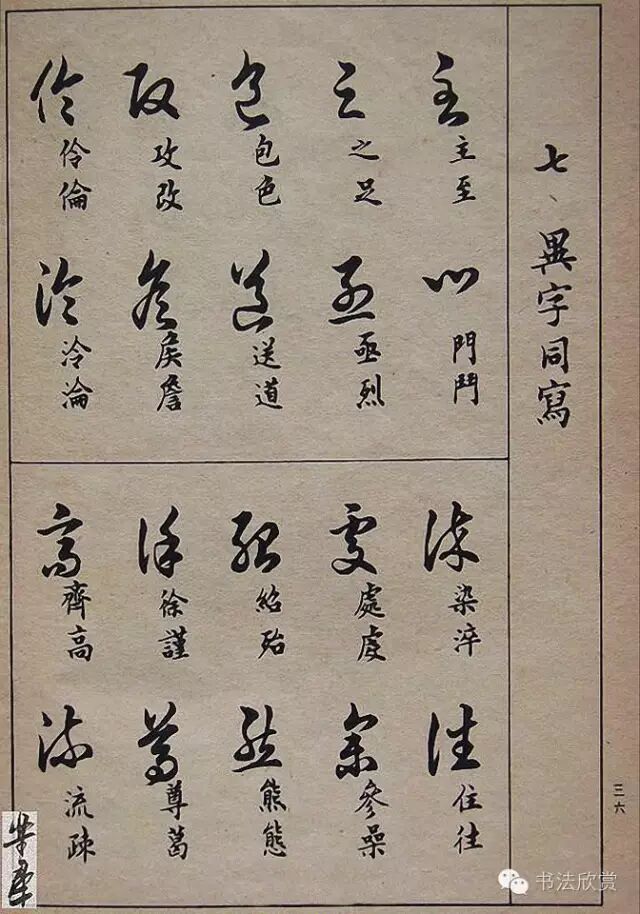 七、異字同寫
主至
之足
包色
攻改
伶倫
門鬥
亟烈
送道
侯詹
泠淪
染淬
處虔
紹殆
徐謹
齊高
住往
參喿
熊態
尊葛
流疎
三六
书法欣赏